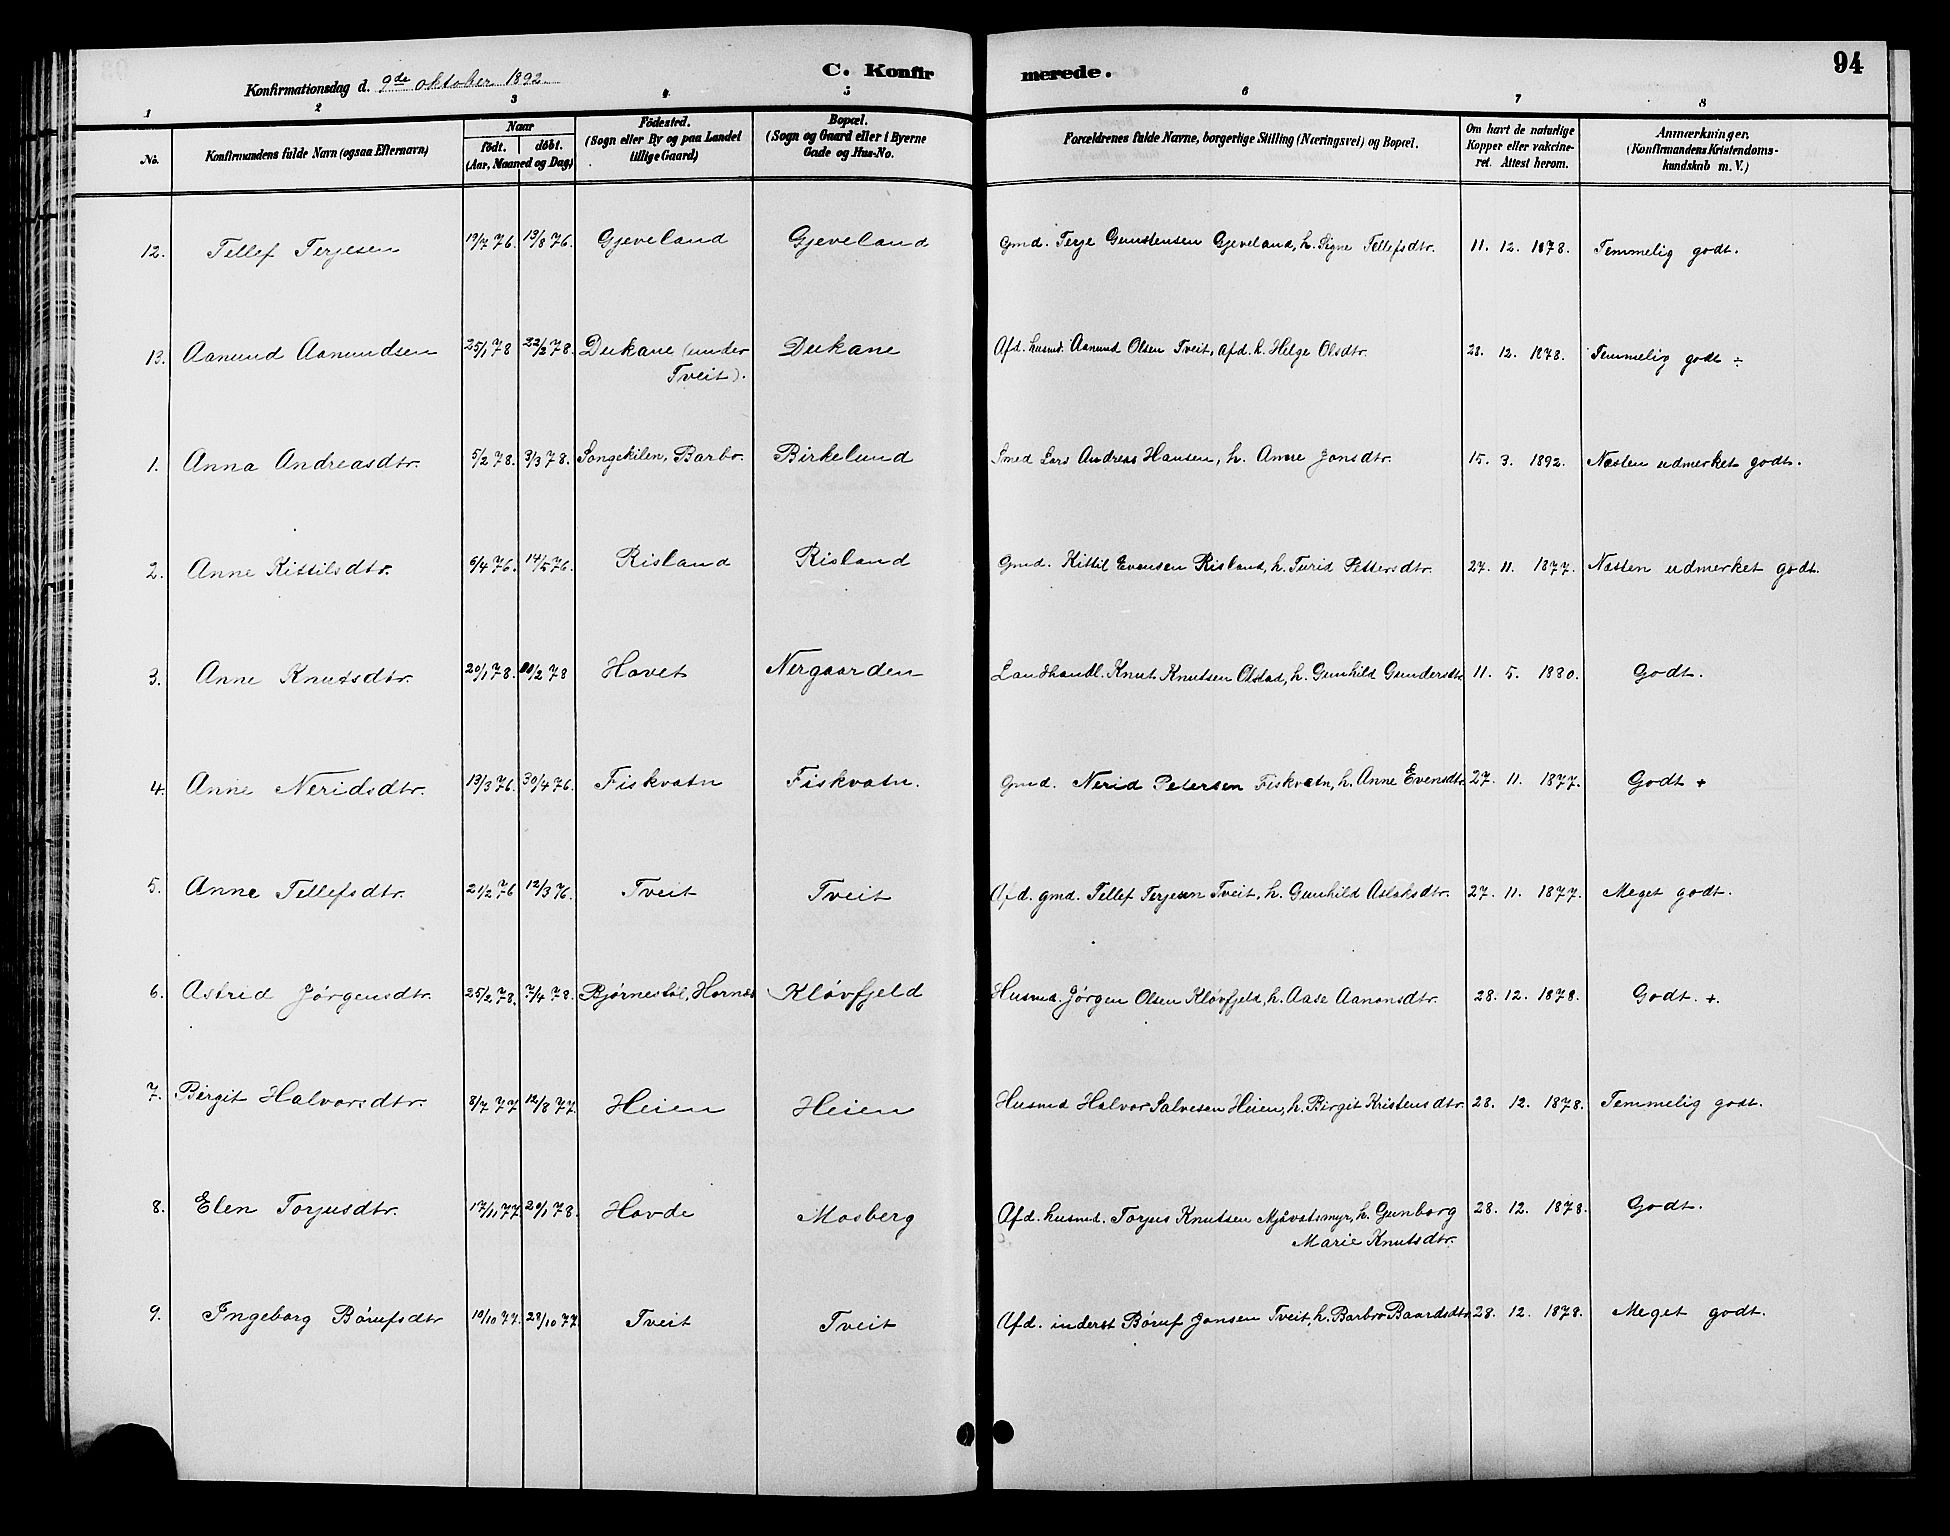 94
C. Konfirmerede.
Konfirmationsdag d. 9de oktober 1892.
1 2 3 4 5 6 7 8
No. Konfirmandens fulde Navn (ogsaa Efternavn) Naar født. døbt. (Aar, Maaned og Dag) Födested. (Sogn eller By og paa Landet tillige Gaard) Bopæl. (Sogn og Gaard eller i Byerne Gade og Hus-No. Forældrenes fulde Navne, borgerlige Stilling (Næringsvei) og Bopæl. Om havt de naturlige Kopper eller vakcineret. Attest herom. Anmærkninger. (Konfirmandens Kristendomskundskab m. V.)
12. Tellef Terjesen 19/7 76. 13/8 76. Gjeveland Gjeveland Gmd. Terje Gunstensen Gjeveland, h. Signe Tellefsdtr. 11. 12. 1878. Temmelig godt.
13. Aanund Aanundsen 25/1 78 22/2 78. Dukane (under Tveit). Dukane Afd. husmd. Aanund Olsen Tveit, afd. h. Helge Olsdtr. 28. 12. 1878. Temmelig godt ÷
1. Anna Andreasdtr. 5/2 78. 3/3 78. Songekilen, Barbo. Birkelund Smed Lars Andreas Hansen, h. Anne Jonsdtr. 15. 3. 1892. Næsten udmerket godt.
2. Anne Kittilsdtr. 6/4 76. 14/5 76. Risland Risland Gmd. Kittil Evensen Risland, h. Turid Pettersdtr. 27. 11. 1877. Næsten udmerket godt.
3. Anne Knutsdtr. 20/1 78. /2 78 Hovet Nergaarden Landhandl. Knut Knutsen Olstad, h. Gunhild Gundersdtr 11. 5. 1880. Godt.
4. Anne Neridsdtr. 13/3 76. 30/4 76. Fiskvatn Fiskvatn. Gmd. Nerid Petersen Fiskvatn, h. Anne Evensdtr. 27. 11. 1877. Godt +
5. Anne Tellefsdtr. 21/2 76 12/3 76. Tveit Tveit Afd. gmd. Tellef Terjesen Tveit, h. Gunhild Aslaksdtr. 27. 11. 1877. Meget godt.
6. Astrid Jørgensdtr. 25/2 78. 7/4 78. Bjørnestøl, Hornæs Kløvfjeld Husmd. Jørgen Olsen Kløvfjeld, h. Aase Aanonsdtr. 28. 12. 1878. Godt. +.
7. Birgit Halvorsdtr. 8/7 77 12/8 77. Heien Heien Husmd Halvor Salvesen Heien, h. Birgit Kristensdtr. 28. 12. 1878. Temmelig godt.
8. Elen Torjusdtr. 17/11 77. 20/1 78. Hovde Mosberg Afd. husmd. Torjus Knutsen Mjåvatsmyr, h. Gunborg Marie Knutsdtr. 28. 12. 1878. Godt.
9. Ingeborg Børufsdtr 10/10 77. 28/10 77 Tveit Tveit Afd. inderst Børuf Jonsen Tveit, h. Barbro Baardsdtr 28. 12. 1878. Meget godt.